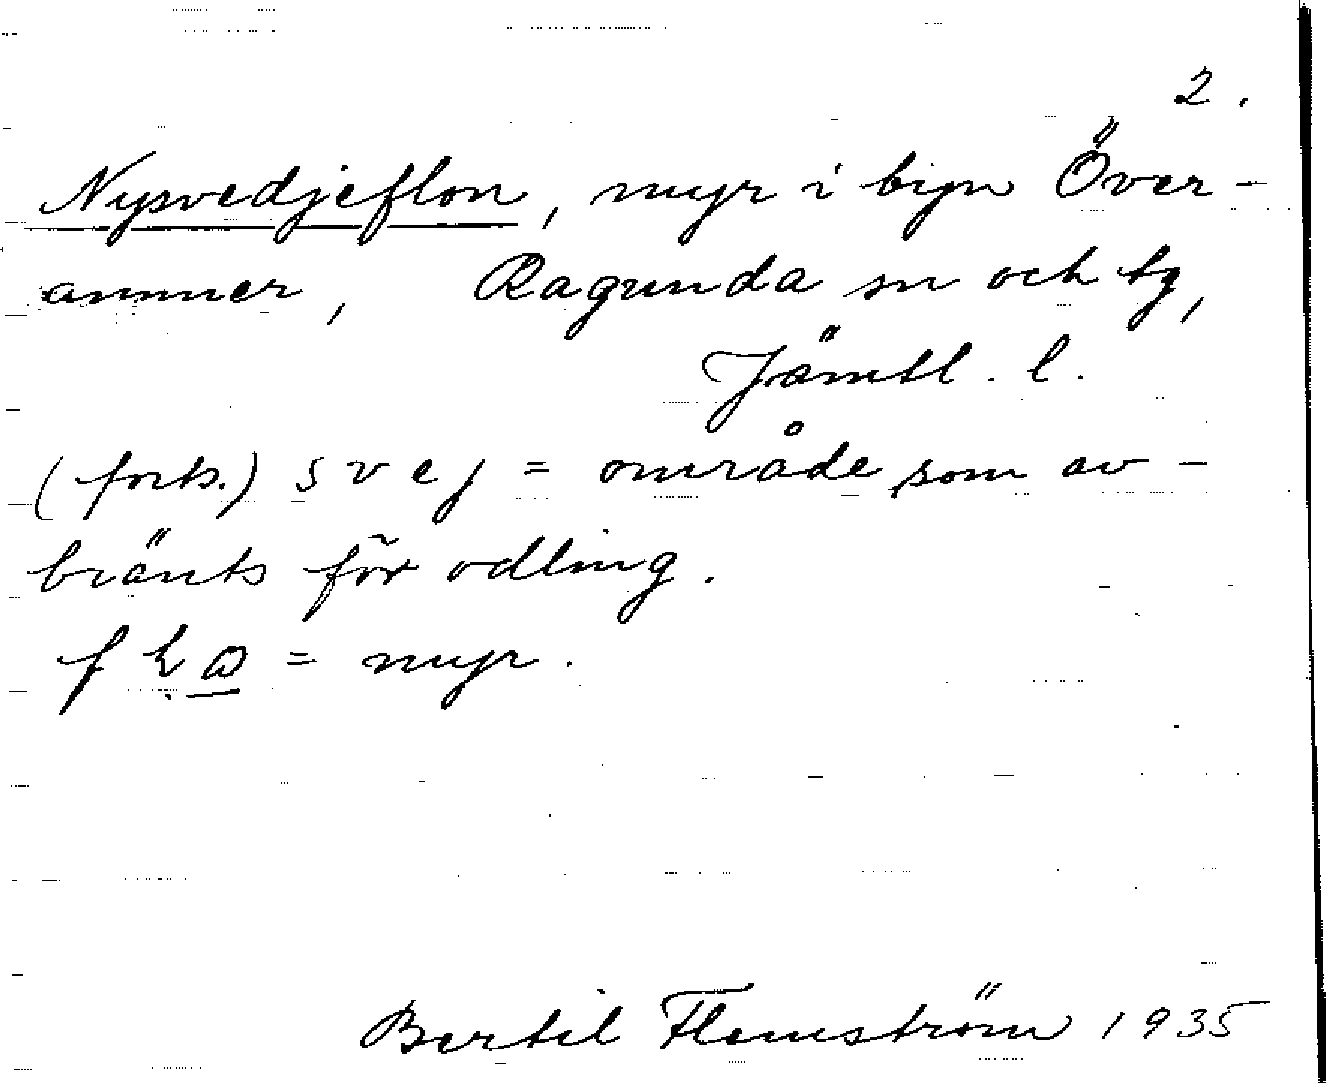 2.
Nysvedjeflon, myr i byn Över-
ammer, Ragunda sn och tg,
Jämtl. l.
(forts.) s v e j = område som av-
bränts för odling.
= myr.
Bertil Flemström 1935